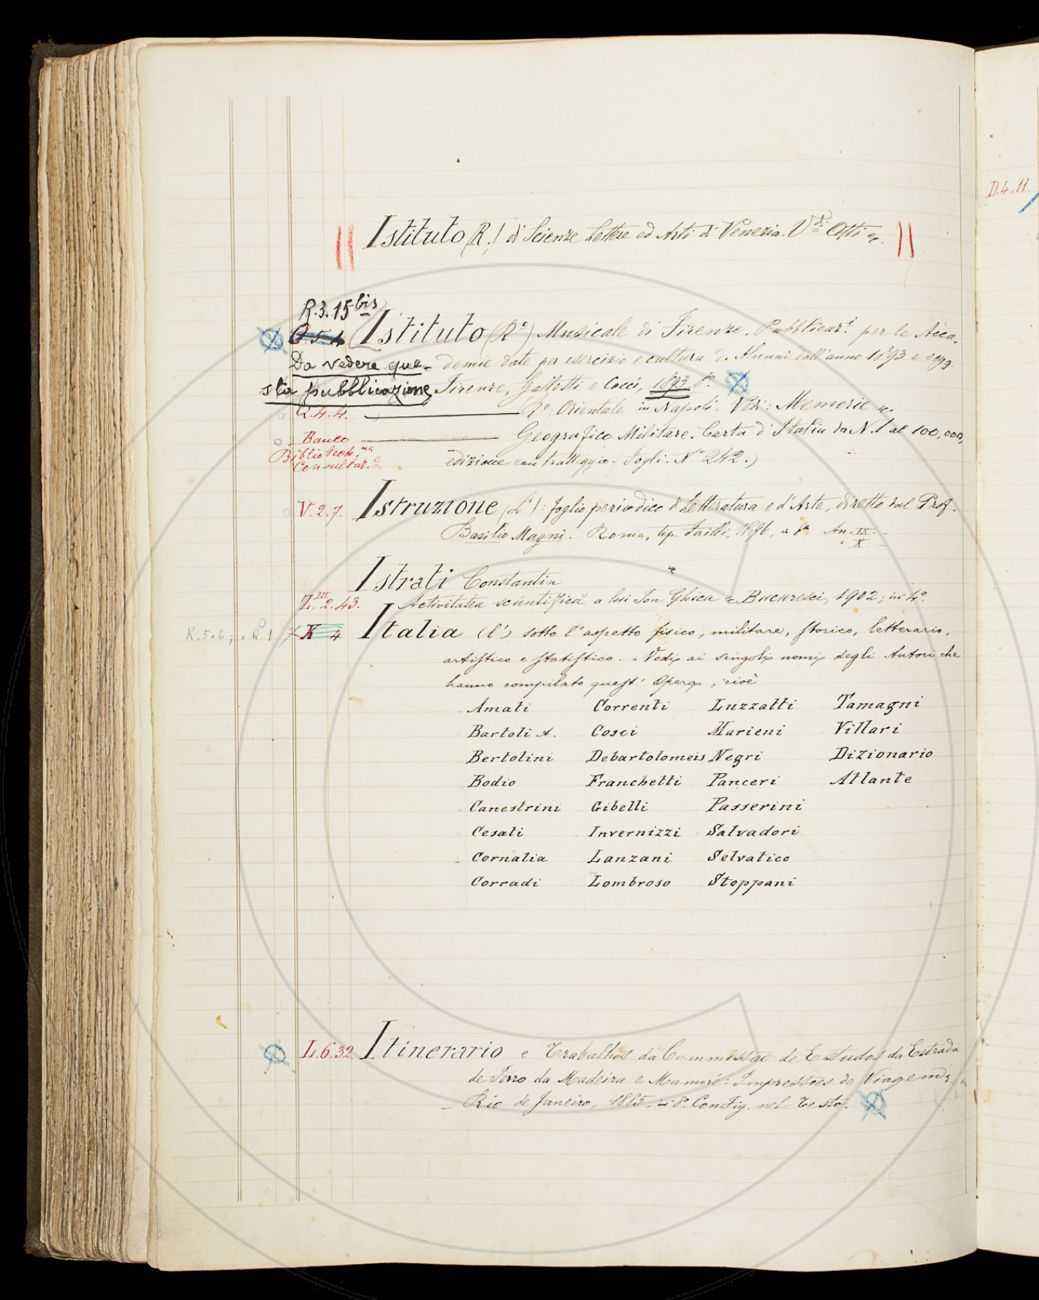 D.4.11.
Istituto (R.) di Scienze Lettere ed Arti di Venezia. V.di Atti
R.3.15 bis
Istituto (R.o) Musicale di Firenze. Pubblicaz.i per le Acca-
Da vedere que- demie date per esercizio e cultura d. Alunni dall'anno 1893
sta pubblicazione Firenze, Galletti e Cocci, 1893 8.°
Q.4.4. (R.o) Orientale in Napoli. Vedi: Memorie
Banco Geografico Militare. Carta d'Italia da N. 1 al 100,000,
Bibliotech.
Consultaz. edizione con tratteggio. (Fogli. N.° 242.)
V.2.7. Istruzione (L'): foglio periodico di Letteratura e d'Arte, diretto dal Prof.
Basilio Magni. Roma, tip. 1896, An. IX.
X.
Istrati Constantin
Z.III 2.43. Activitatea scientifică a lui Ion Ghica Bucuresci, 1902; in 4.°
K.5 e 6; e Q.1 K 4 Italia (l') sotto l'aspetto fisico, militare, storico, letterario,
artistico e statistico. Vedi ai singoli nomi degli Autori che
hanno compilato quest' Opera, cioè
Amati Correnti Luzzatti Tamagni
Bartoli A. Cosci Marieni Villari
Bertolini Debartolomeis Negri Dizionario
Bodio Franchetti Panceri Atlante
Canestrini Gibelli Passerini
Cesati Invernizzi Salvadori
Cornalia Lanzani Selvatico
Corradi Lombroso Stoppani
L.6.32. Itinerario e Trabalhos da Commissão de Estudos da Estrada
de Ferro da Madeira e Mamoré: Impressões de Viagem.
Rio de Janeiro, 1885, in 8.° Con Fig. nel Testo.